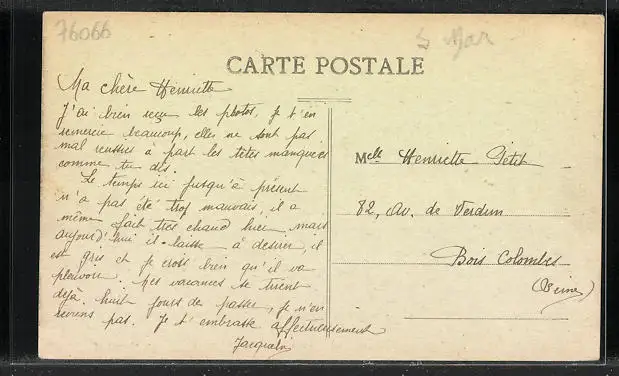 76066
CARTE POSTALE
Ma chère Henriette
J'ai bien reçu les photos, je t'en
remercie beaucoup, elles ne sont pas
mal reussies à part les têtes manquées
comme tu dis.
Le temps ici jusqu'à présent
n'a pas été trop mauvais, il a
même fait très chaud hier mais
aujourd'hui il laisse à désirer, il
est gris et je crois bien qu'il va
pleuvoir. Les vacances se tirent
déjà huit jours de passés, je n'en
reviens pas. Je t'embrasse affectueusement
Melle Henriette Petit
82, Av. de Verdun
Bois Colombes
(Seine)